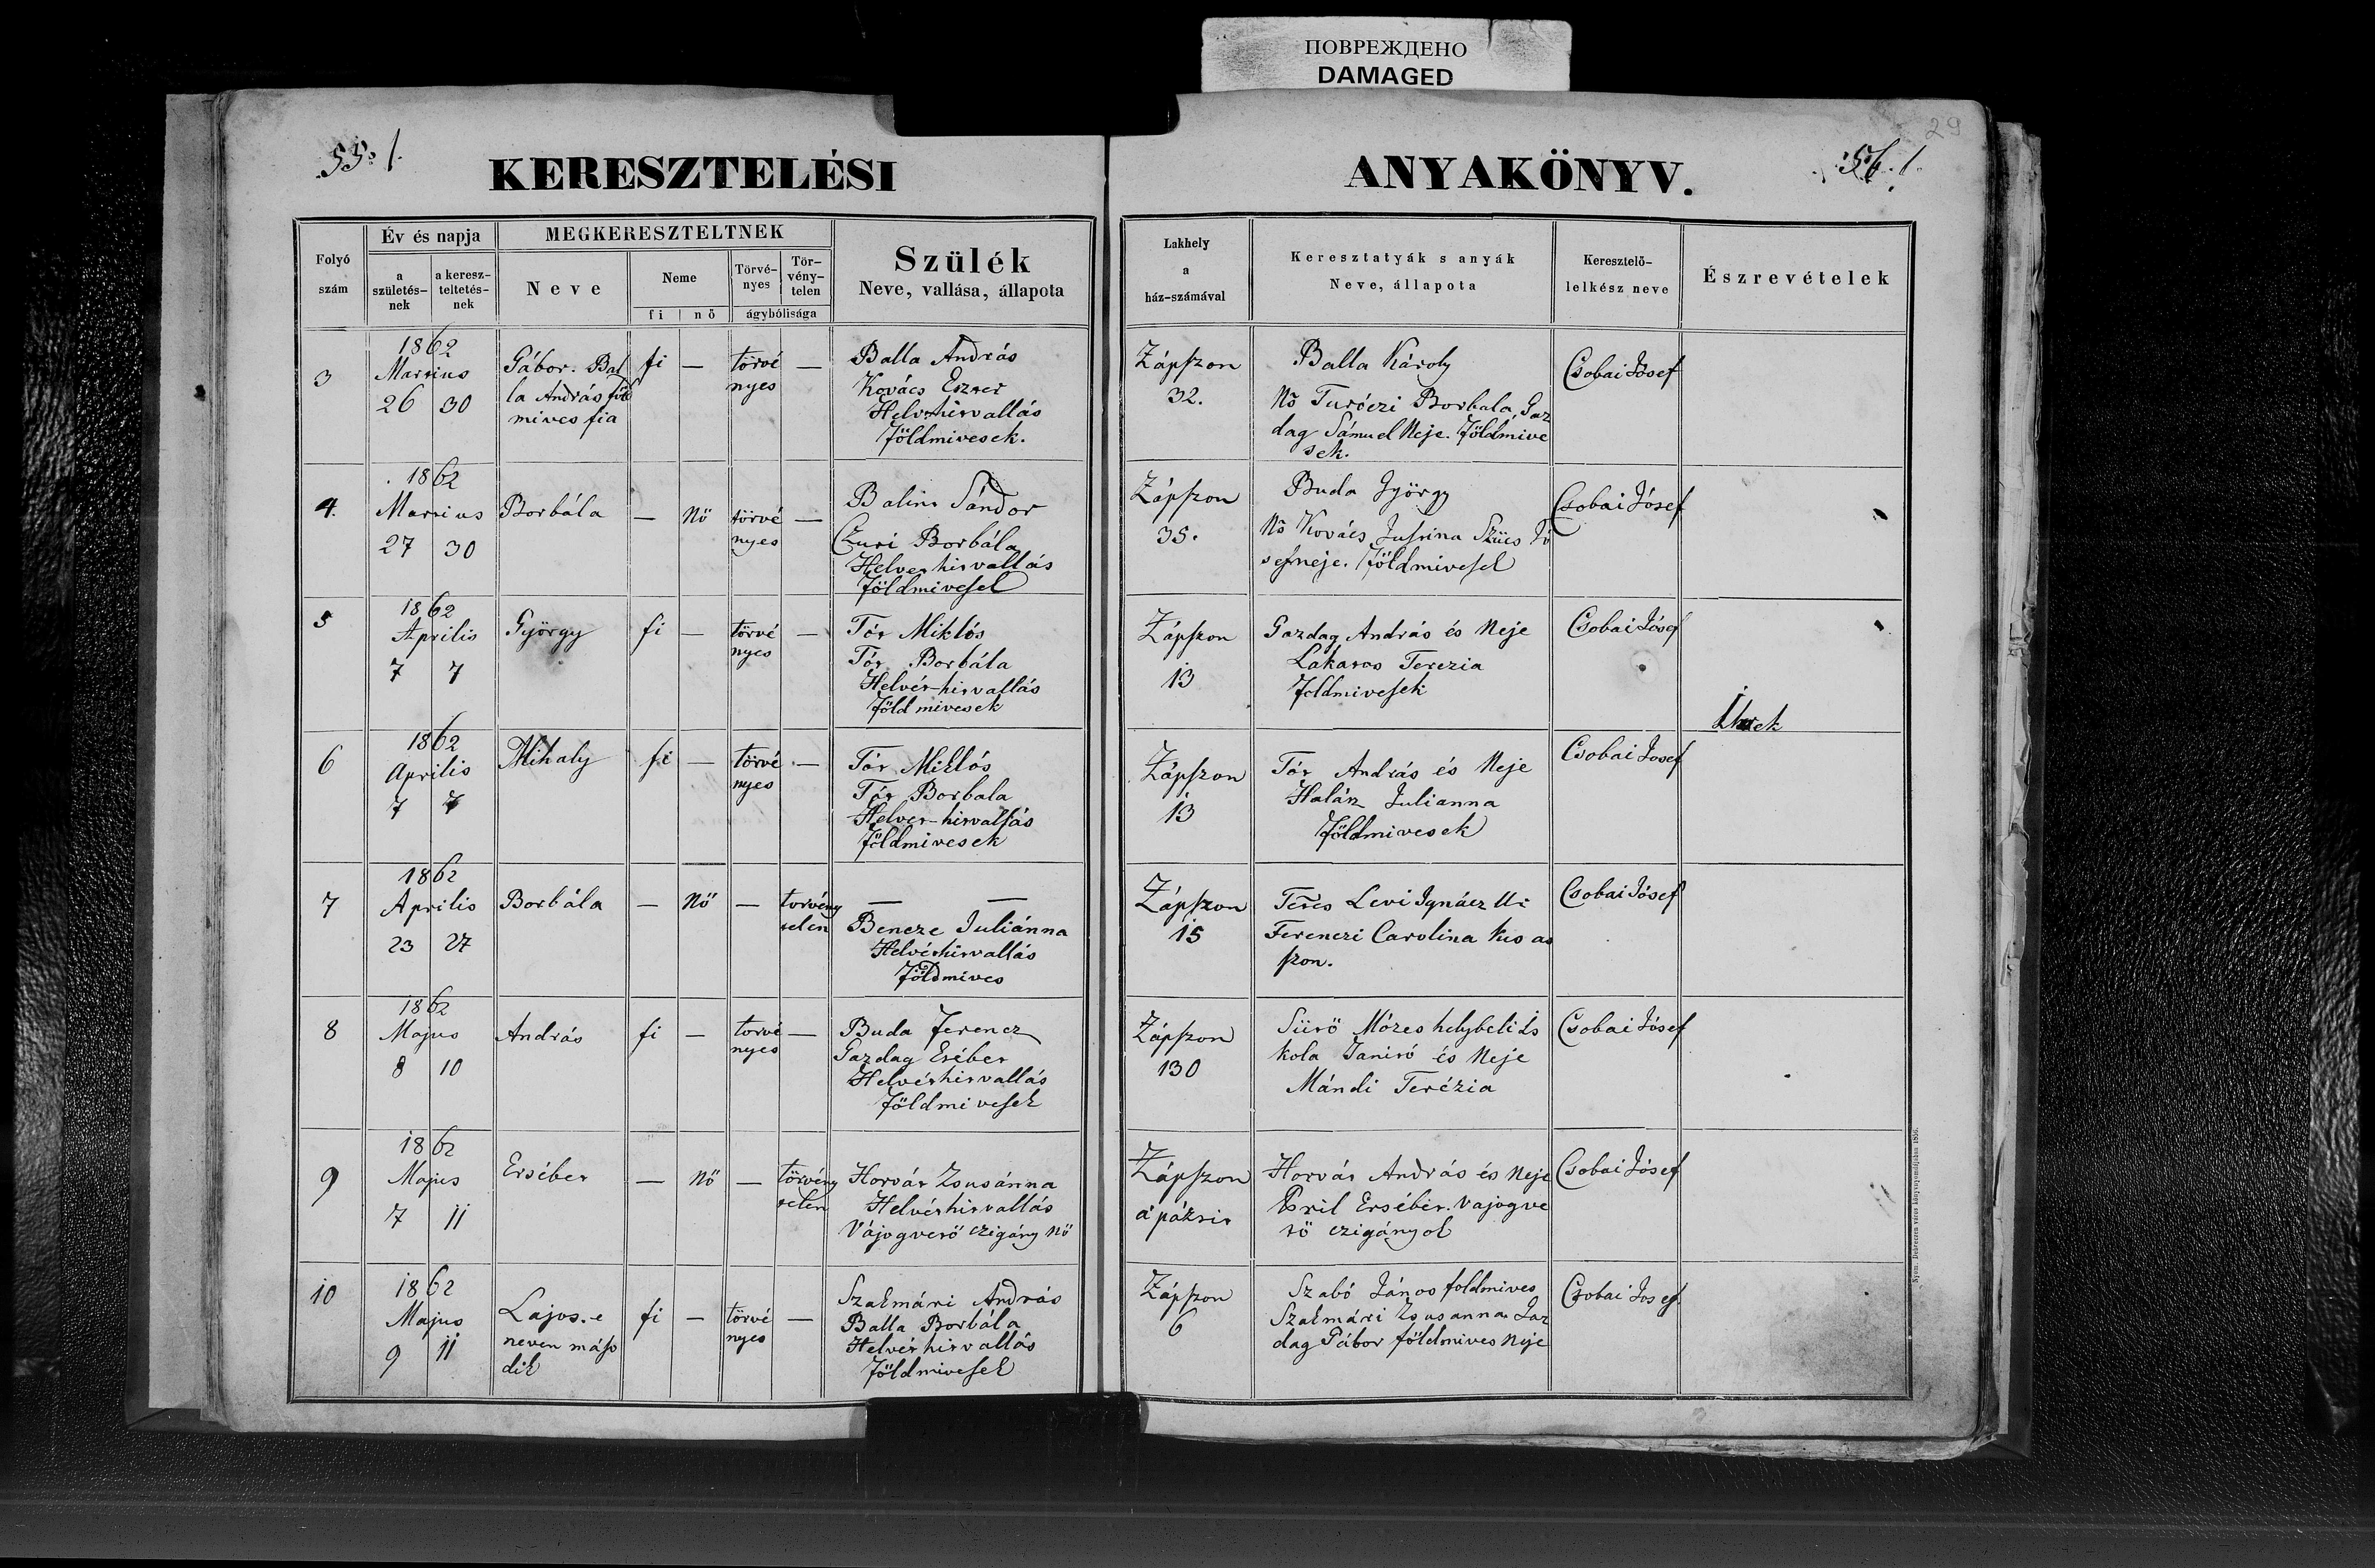 ПОВРЕЖДЕНО
DAMAGED
29
55. 1.
56. 1.
KERESZTELÉSI
ANYAKÖNYV.
Folyó szám
Év és napja
a születés-nek
a keresz-teltetés-nek
MEGKERESZTELTNEK
Neve
Neme
fi
nő
Törvé-nyes
Tör-vény-telen
ágybólisága
Szülék
Neve, vallása, állapota
Lakhely
a
ház-számával
Keresztatyák s anyák
Neve, állapota
Keresztelő-
lelkész neve
Észrevételek
3
1862
Martius
26 30
Gábor. Bal
la András föld
mives fia
fi —
törvé
nyes
—
Balla András
Kovács Eszter
Helvét hitvallás
Földmivesek.
Zápszon
32.
Balla Károly
Nő Turóczi Borbala, Gaz
dag Sámuel Neje. Földmive
sek.
Csobai Jósef
4.
1862
Martius
27 30
Borbála
— Nő
törvé
nyes
—
Balint Sándor
Czuri Borbála
Helvet hitvallás
Földmivesek
Zápszon
35.
Buda György
Nő Kovács Justina Szücs Jó
sef neje. Földmivesek
Csobai Jósef
5
1862
Április
7 7
György
fi —
törvé
nyes
—
Tót Miklós
Tót Borbála
Helvét-hitvallás
Földmivesek
Zápszon
13
Gazdag András és Neje
Lakatos Terezia
Földmivesek
Csobai Jósef
Ikrek
6
1862
Aprilis
7 7
Mihaly
fi —
törvé
nyes
—
Tót Miklós
Tót Borbala
Helvet-hitvallás
Földmivesek
Zápszon
13
Tót András és Neje
Halász Julianna
Földmivesek
Csobai Josef
7
1862
Aprilis
23 27
Borbála
— Nő —
törvény
telen
— —
Bencze Juliánna
Helvét hitvallás
Földmives
Zápszon
15
Levi Ignácz
Ferenczi Carolina kis as
szon.
Csobai Jósef
8
1862
Majus
8 10
András
fi —
torvé
nyes
—
Buda Ferencz
Gazdag Esébet
Helvét hitvallás
Földmivesek
Zápszon
130
Sürö Mózes helybeli Is
kola Tanitó és Neje
Mándi Terézia
Csobai Jósef
9
1862
Majus
7 11
Ersébet
— Nő —
törvény
telen
Horvát Zsusánna
Helvét hitvallás
Vájogverő czigány nő
Zápszon
Horvát András és Neje
Ersébet. Vajogve
rő czigányok
Csobai Jósef
10
1862
Majus
9 11
Lajos. e
neven máso
dik
fi —
törvé
nyes
—
Szatmári András
Balla Borbála
Helvét hitvallás
Földmivesek
Zápszon
6
Szabó János foldmives
Szatmári Zsusanna Gaz
dag Gábor földmives Neje
Csobai Josef
Nyom. Debreczen város könyvnyomdájában 1856.